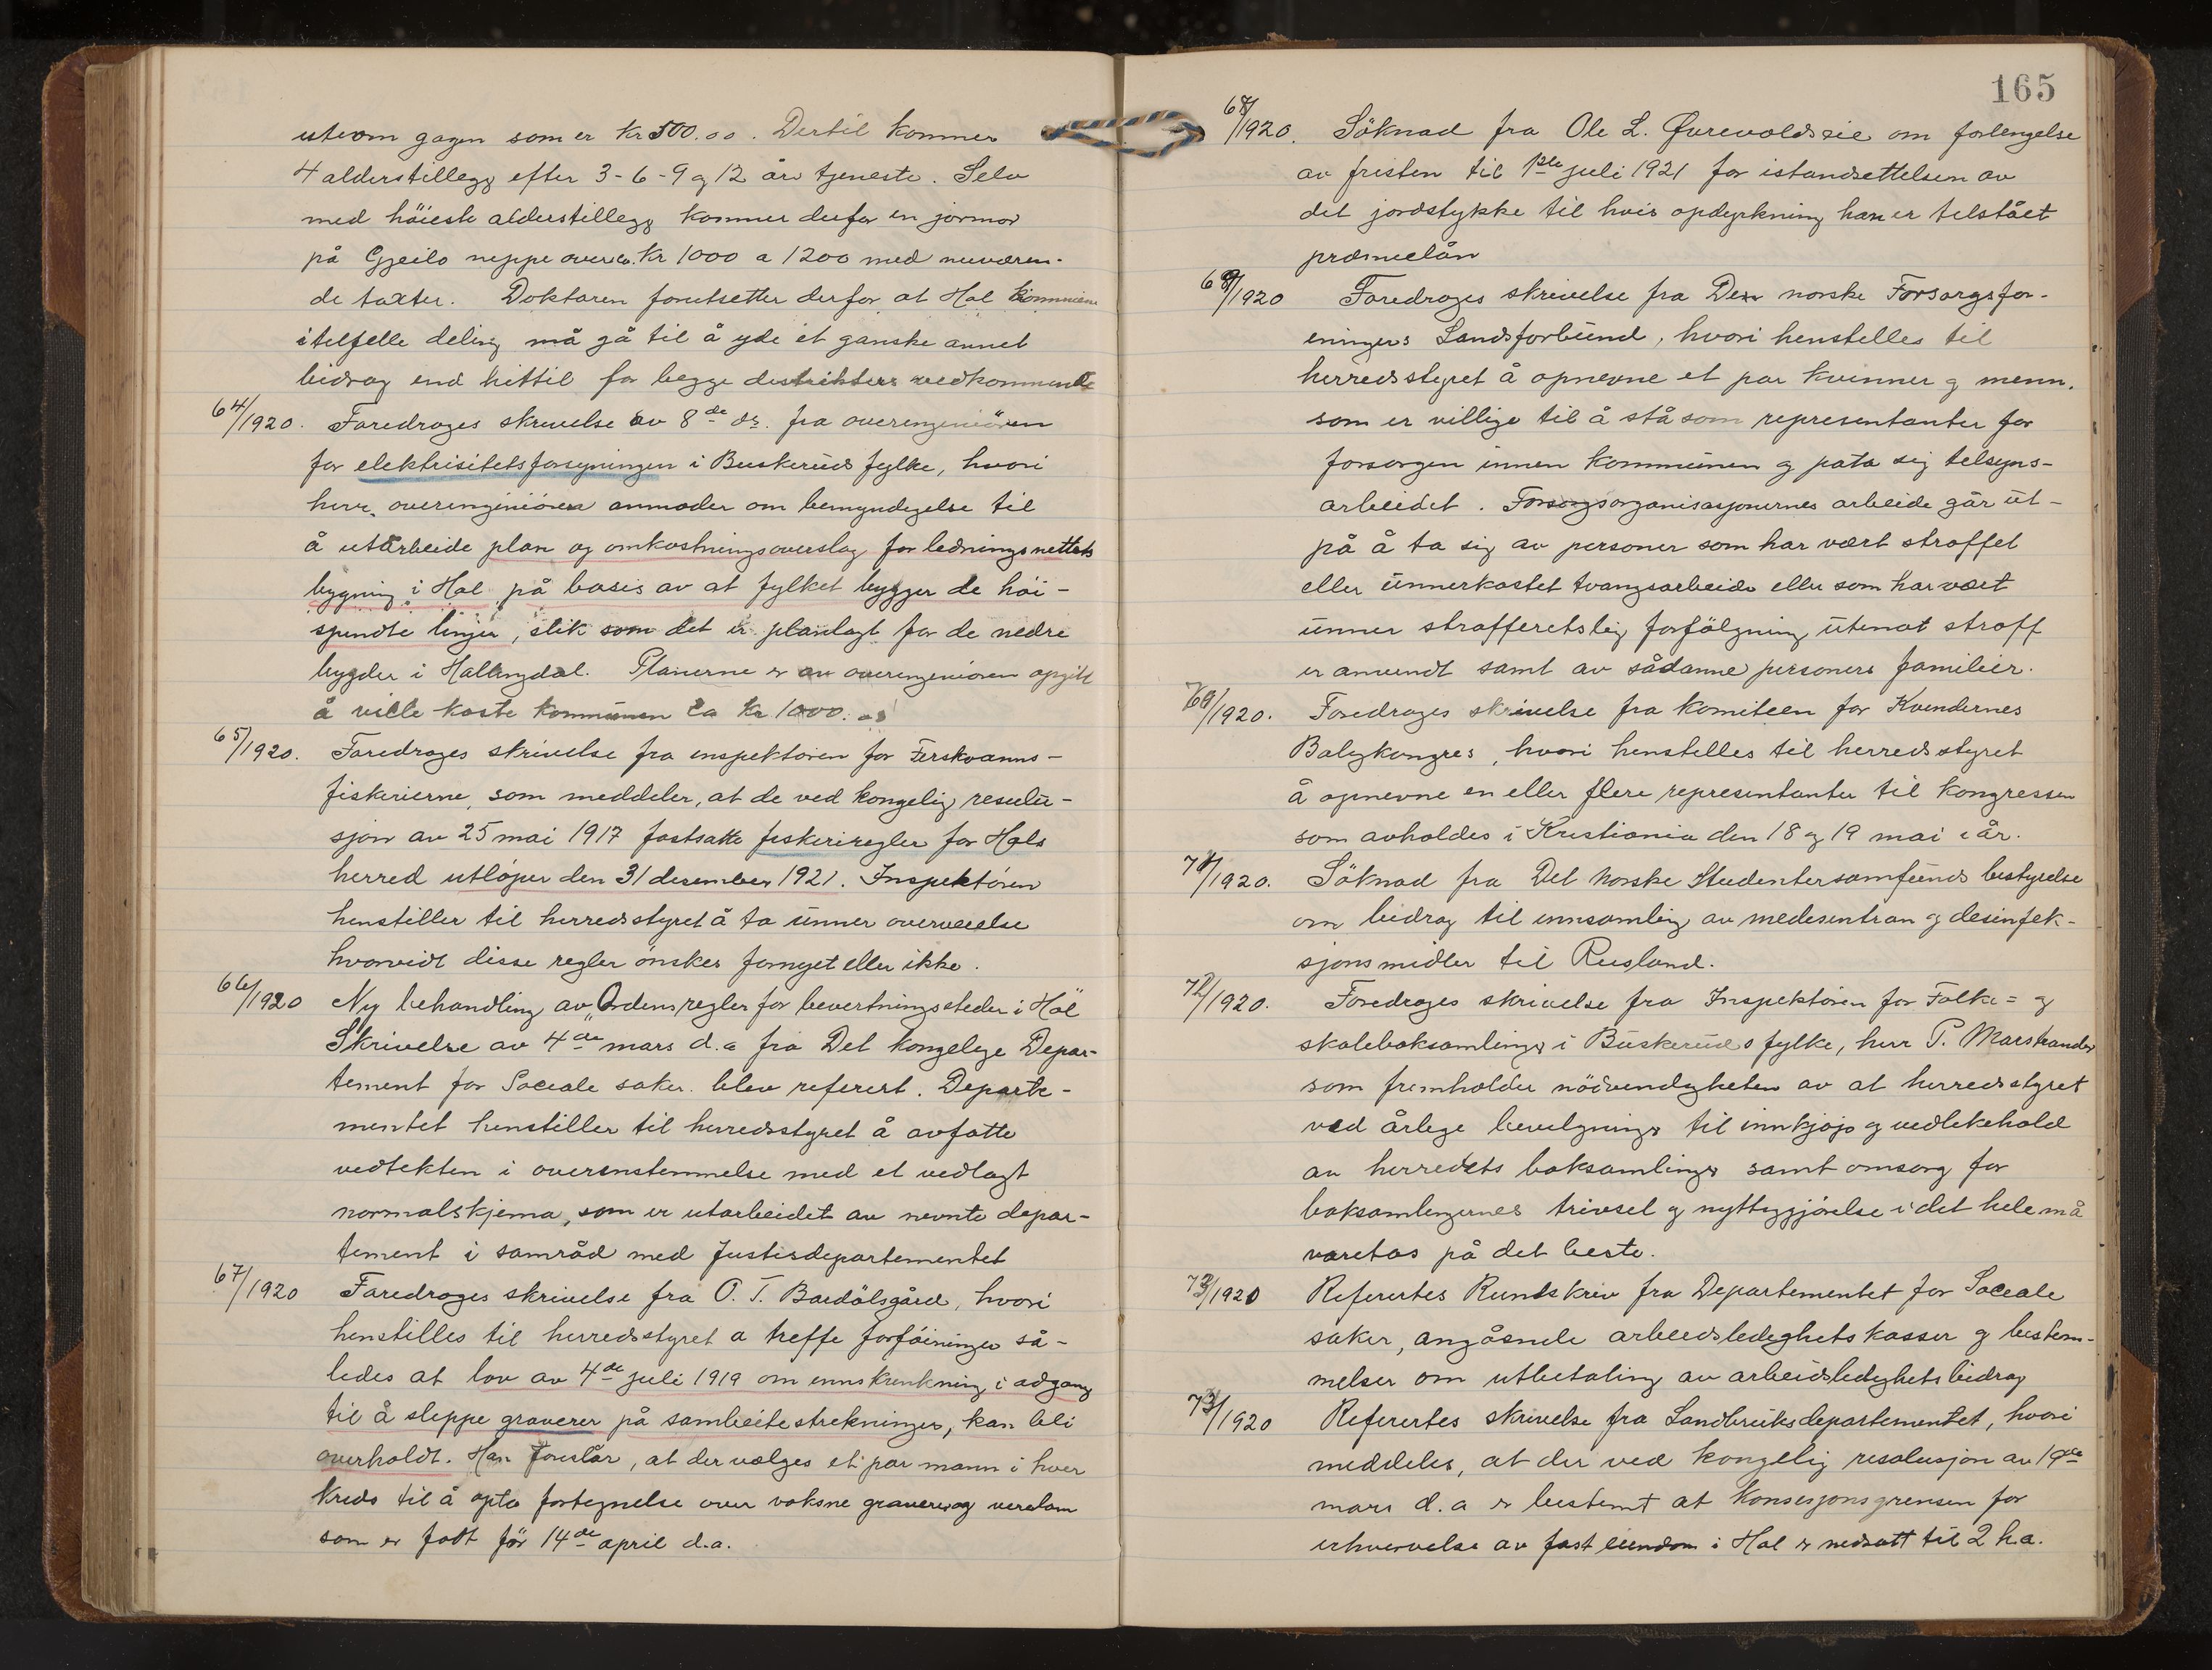 utenom gagen som er kr 500.00. Dertil kommer
4 alderstillegg efter 3-6-9 og 12 års tjeneste. Selv
med höieste alderstillegg kommer derfor en jormor
på Gjeilo neppe over ca. kr 1000 a 1200 med nuværen-
de takster. Doktoren forutsetter derfor at Hol kommune
i tilfelle deling må gå til å yde et ganske annet
bidrag end hittil for begge distrikters vedkommende
64/1920. Foredroges skrivelse av 8de ds. fra overingeniören
for elektrisitetsforsyningen i Buskeruds fylke, hvori
herr overingeniören anmoder om bemyndigelse til
å utarbeide plan og omkostningsoverslag for ledningsnettets
bygning i Hol på basis av at fylket bygger de höi-
spendte linjer, slik som det er planlagt for de nedre
bygder i Hallingdal. Planerne er av overingeniören opgitt
å ville koste kommunen ca kr 1000.00
65/1920. Foredroges skrivelse fra inspektören for Ferskvanns-
fiskerierne, som meddeler, at de ved kongelig resolu-
sjon av 25 mai 1917 fastsatte fiskeriregler for Hols
herred utlöper den 31 desember 1921. Inspektören
henstiller til herredsstyret å ta unner overveielse
hvorvidt disse regler önskes fornyet eller ikke.
66/1920 Ny behandling av „Ordensregler for bevertningssteder i Hol"
Skrivelse av 4de mars d.a fra Det kongelige Depar-
tement for Sociale saker. blev referert. Departe-
mentet henstiller til herredsstyret å avfatte
vedtekten i overenstemmelse med et vedlagt
normalskjema, som er utarbeidet av nevnte depar-
tement i samråd med Justisdepartementet
67/1920 Foredroges skrivelse fra O. T. Bardölsgård, hvori
henstilles til herredsstyret a treffe forföininger så-
ledes at lov av 4de juli 1919 om innskrenkning i adgang
til å sleppe graverer på sambeitestrekninger, kan bli
overholdt. Han foreslår, at der vælges et par mann i hver
kreds til å opta fortegnelse over voksne graverer og verelam
som er fodt för 14de april d.a.
165
68/1920. Söknad fra Ole L. Øvrevoldseie om forlengelse
av fristen til 1ste juli 1921 for istandsettelsen av
det jordstykke til hvis opdyrkning han er tilstået
præmielån
69/1920 Foredroges skrivelse fra Den norske Forsorgsfor-
eningers Landsforbund, hvori henstilles til
herredsstyret å opnevne et par kvinner og menn.
som er villige til å stå som representanter for
forsorgen innen kommunen og pata sig tilsyns-
arbeidet. Forsorgsorganisasjonernes arbeide går ut-
på å ta sig av personer som har vært straffet
eller unnerkastet tvangsarbeide eller som har vært
unner strafferetslig forfölgning utenat straff
er anvendt samt av sådanne personers familier.
70/1920. Foredroges skrivelse fra komiteen for Kvindernes
Boligkongres, hvori henstilles til herredsstyret
å opnevne en eller flere representanter til kongressen
som avholdes i Kristiania den 18 og 19 mai i år.
71/1920. Söknad fra Det Norske Studentersamfunds bestyrelse
om bidrag til innsamling av medesintran og desinfek-
sjonsmidler til Rusland.
72/1920. Foredroges skrivelse fra Inspektören for Folke= og
skoleboksamlinger i Buskeruds fylke, herr P. Marstrander
som fremholder nödvendigheten av at herredsstyret
ved årlige bevilgninger til innkjöp og vedlikehold
av herredets boksamlinger samt omsorg for
boksamlingernes trivsel og nyttiggjörelse i det hele må
varetas på det beste.
73/1920 Referertes Rundskriv fra Departementet for Sociale
saker, angåsnde arbeidsledighetskasser og bestem-
melser om utbetaling av arbeidsledighetsbidrag
73/1920 Referertes skrivelse fra Landbruksdepartementet, hvori
meddeles, at der ved kongelig resolusjon av 19de
mars d.a er bestemt at konsesjonsgrensen for
erhvervelse av fast eiendom i Hol er nedsatt til 2 h.a.